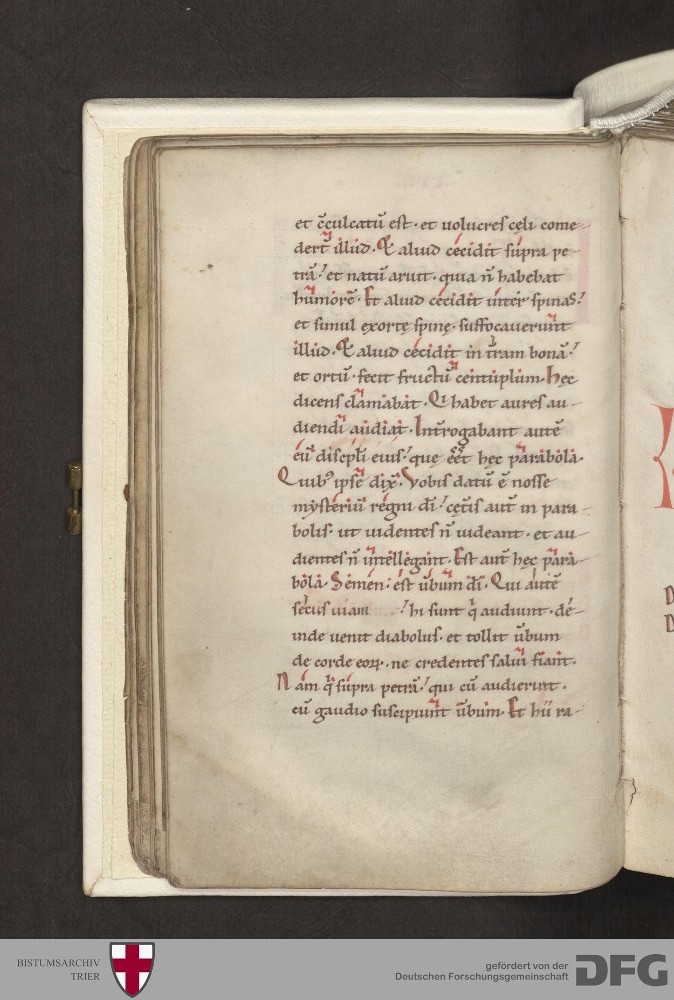 et c̄culcatū est · et uolucres cęli come-
dert̄ illud · Et aliud cecidit supra pe-
trā · et natū aruit · quia n̄ habebat
humorē · Et aliud cecidit inter spinas ·
et simul exortę spinę · suffocauerunt
illud · Et aliud cecidit in t̄ram bonā ·
et ortū · fecit fructū centuplum · Hęc
dicens clamabat · Qi habet aures au-
diendi audiat · Int̄rogabant autē
eū discipl̄i eius · que eēt hęc parabola ·
Quib; ipse dix̄ · Vobis datū ē nosse
mysteriū regni dī · cęt̄is aut̄ in para-
bolis · ut uidentes n̄ uideant · et au-
dientes n̄ intellegant · Est aut̄ hęc para-
bola · Semen · est ūbum dī · Qui autē
secus uiam · hi sunt q̄ audiunt · de-
inde uenit diabolus · et tollit ūbum
de corde eoꝝ · ne credentes salui fiant ·
Nam q̄ supra petrā · qui cū audierint ·
cū gaudio suscipiunt ūbum · Et hii ra-
BISTUMSARCHIV
TRIER
gefördert von der
Deutschen Forschungsgemeinschaft
DFG